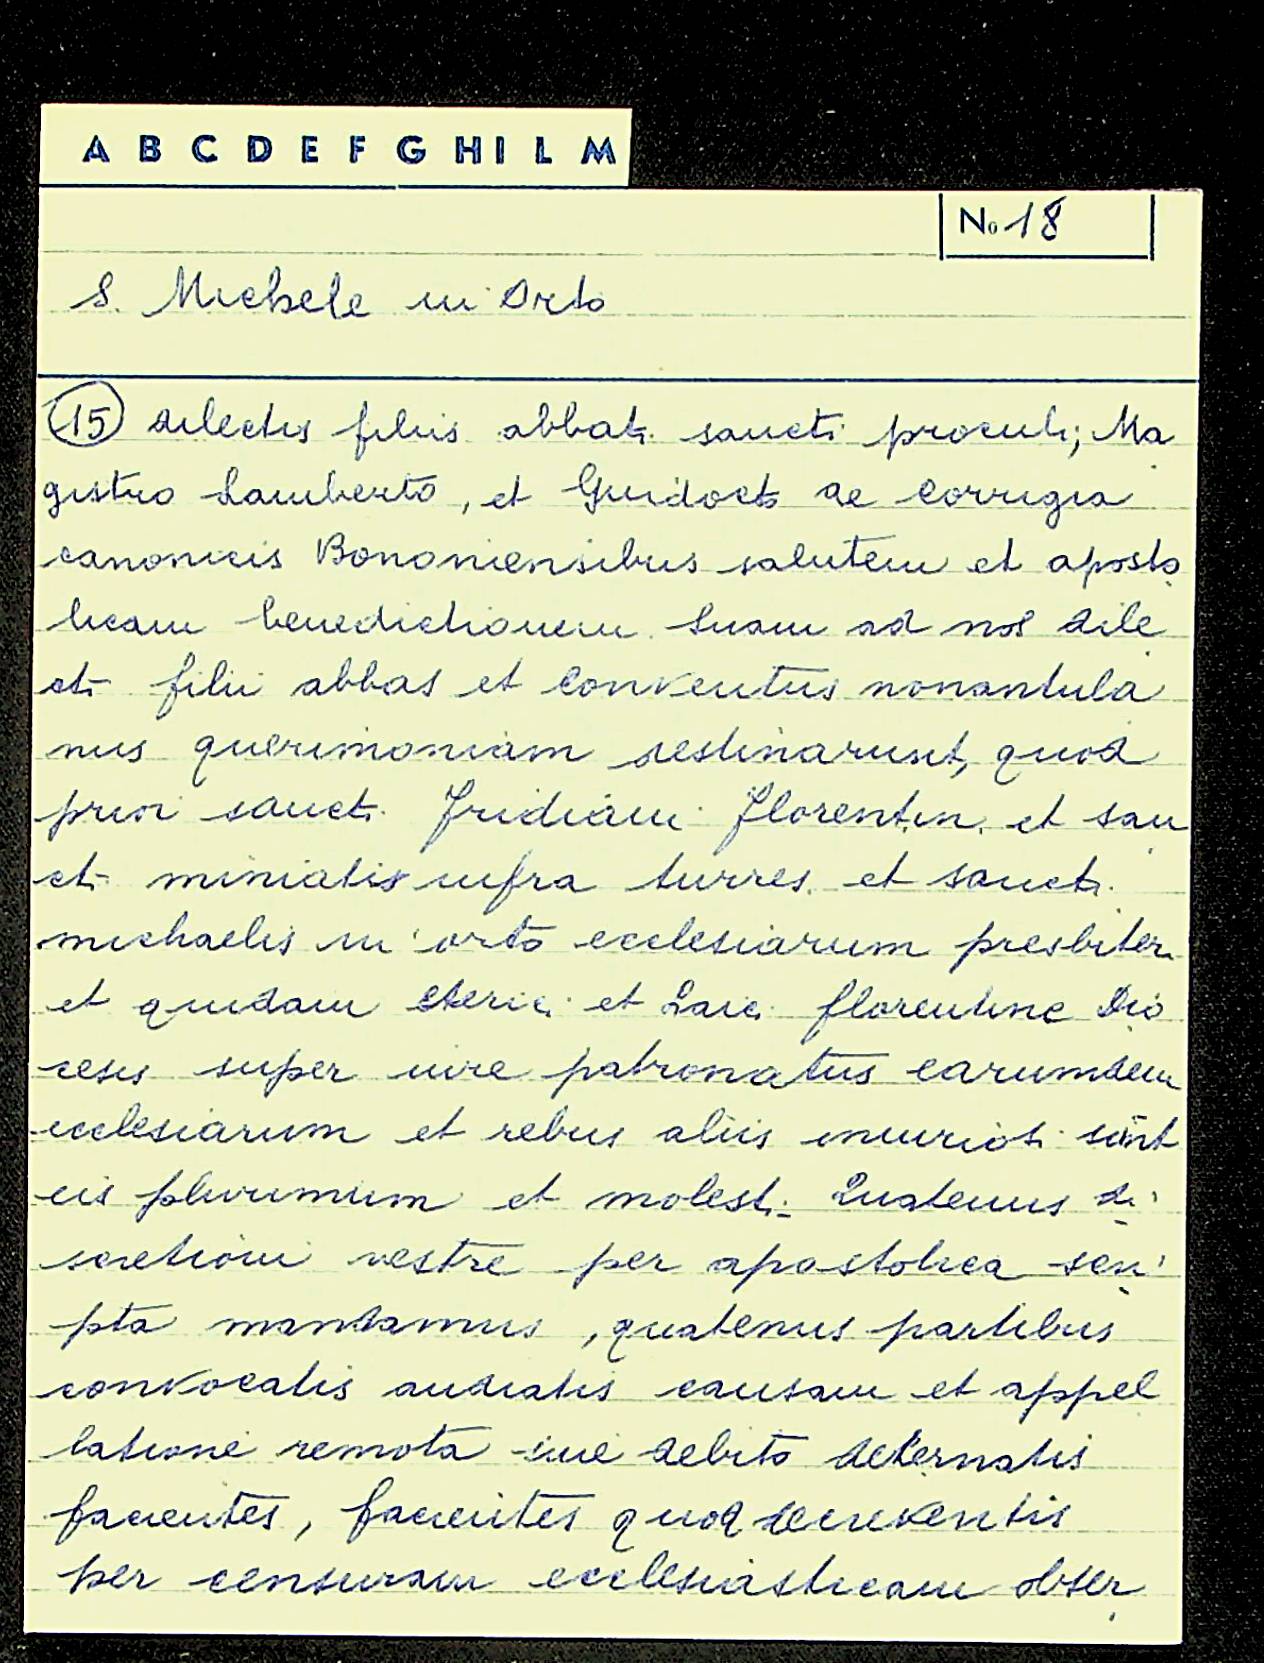 A B C D E F G H I L M
No 18
S. Michele in Orto
15 dilectis filiis abbati sancti proculi; Ma
gistro Lamberto, et Guidocto de Corrigia
canonicis Bononiensibus salutem et aposto
licam benedictionem. Suam ad nos dile
cti filii abbas et conventus nonantula
nus querimoniam destinarunt, quod
prior sancti Fridiani Florentin. et san
cti miniatis infra turres. et sancti
michaelis in orto ecclesiarum presbiteri
et quidam clerici et Laici florentine Dio
cesis super iure patronatus earumdem
ecclesiarum et rebus aliis iniuriosi sunt
eis plurimum et molesti. Quatenus di
scretioni vestre per apostolica scri
pta mandamus, quatenus partibus
convocatis audiatis causam et appel
latione remota sine debito deternatis
facientes, facientes quod decreveritis
per censuram ecclesiasticam obser